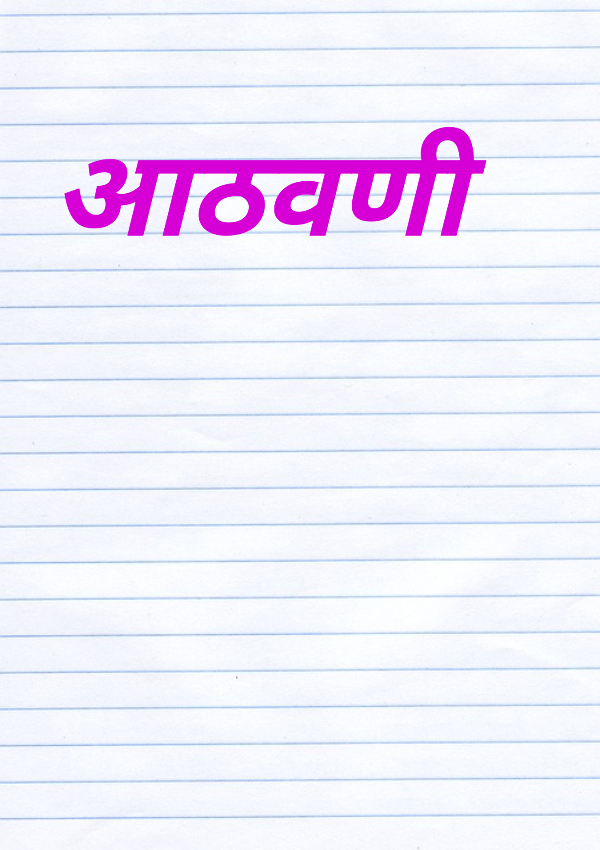 आठवणी